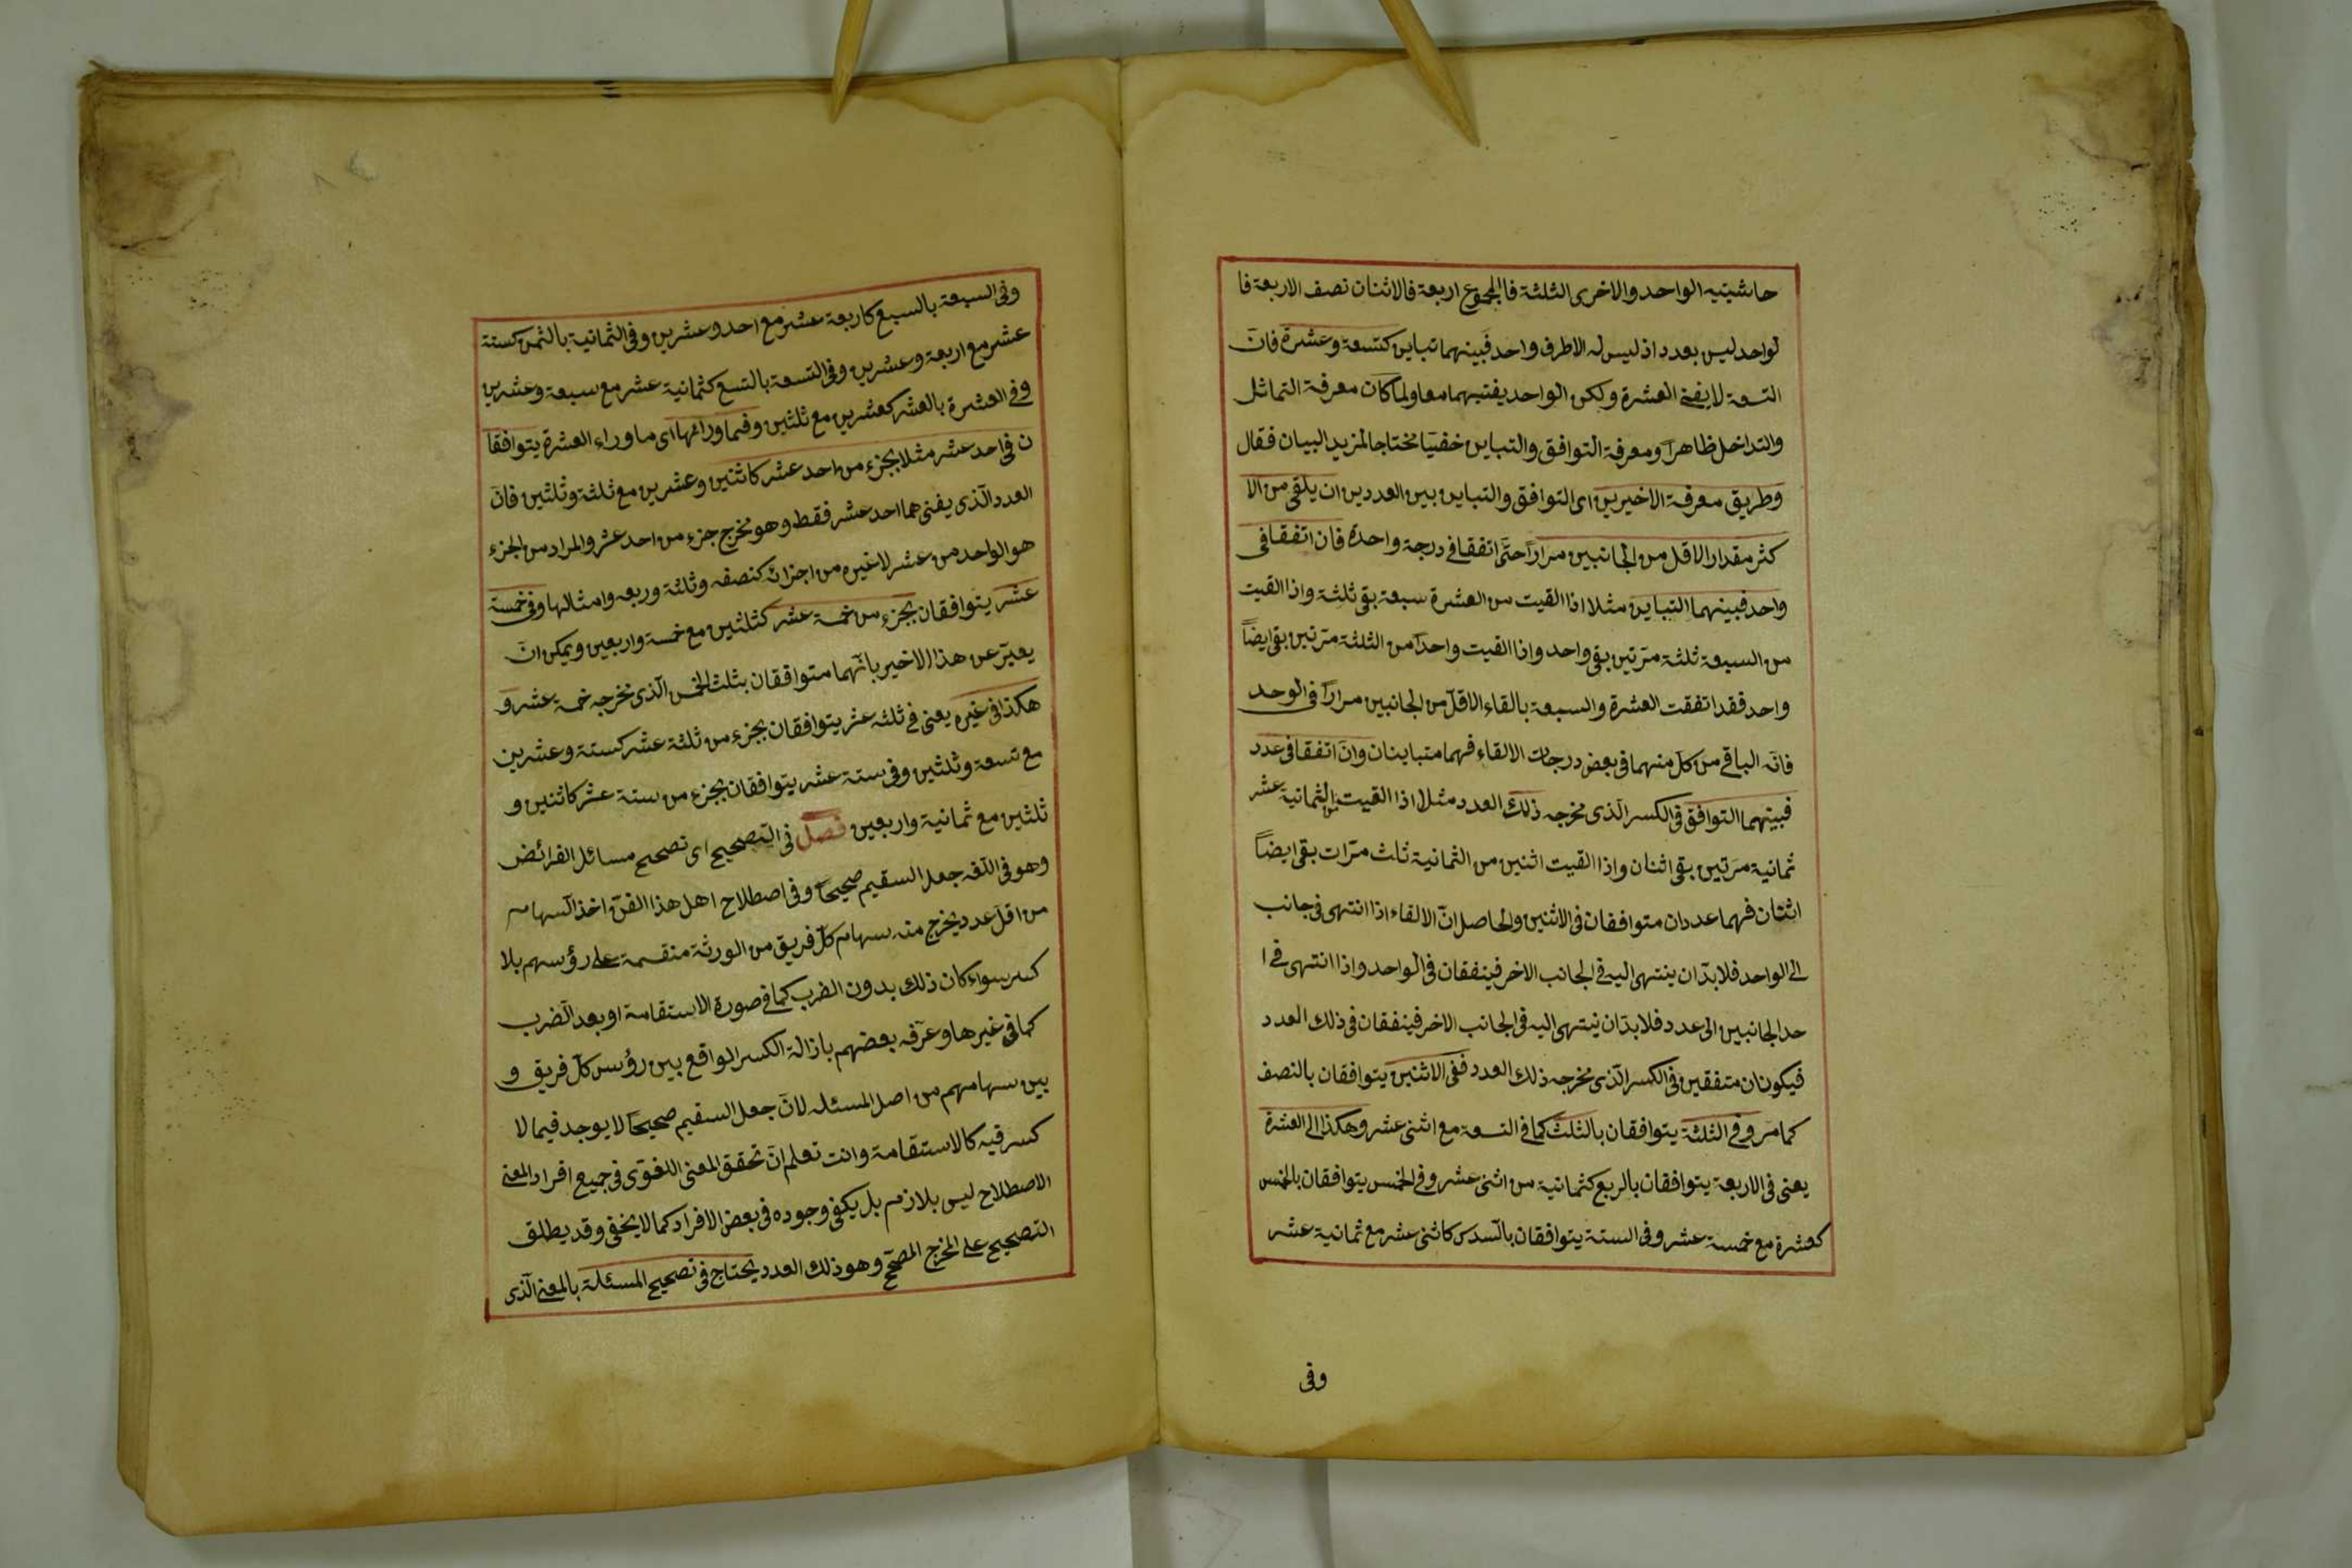 حاشيتيه الواحد والاخرى الثلثة فالمجموع اربعة فالاثنان نصف الاربعة فا
لواحد ليس بعدد اذ ليس له الاطرف واحد فبينهما تباين كتسعة وعشرة فانّ
التسعة لا يفنى العشرة ولكن الواحد يفنيهما معا ولما كان معرفة التماثل
والتداخل ظاهراً ومعرفة التوافق والتباين خفيّا محتاجا لمزيد البيان فقال
وطريق معرفة الاخيرين اى التوافق والتباين بين العددين ان يلقى من الا
كثر مقدار الاقل من الجانبين مراراً حتّى اتفقا فى درجة واحدة فان اتفقا فى
واحد فبينهما التباين مثلا اذا القيت من العشرة سبعة بقى ثلثة واذا القيت
من السبعة ثلثة مرّتين بقى واحد واذا القيت واحداً من الثلثة مرّتين بقى ايضاً
واحد فقد اتفقت العشرة والسبعة بالقاء الاقلّ من الجانبين مراراً فى الوحد
فانّه الباقى من كلّ منهما فى بعض درجات الالقاء فهما متباينان وانّ اتفقا فى عدد
فبينهما التوافق فى الكسر الّذى مخرجه ذلك العدد مثلا اذا القيت من الثمانية عشر
ثمانية مرّتين بقى اثنان واذا القيت اثنين من الثمانية ثلث مرّات بقى ايضاً
اثنان فهما عددان متوافقان فى الاثنين والحاصل انّ الالقاء اذا انتهى فى جانب
الى الواحد فلا بدّ ان ينتهى اليه فى الجانب الاخر فيتفقان فى الواحد واذا انتهى فى ا
حد الجانبين الى عدد فلا بدّ ان ينتهى اليه فى الجانب الاخر فيتفقان فى ذلك العدد
فيكونان متفقين فى الكسر الّذى مخرجه ذلك العدد ففى الاثنين يتوافقان بالنصف
كما مرّ وفى الثلثة يتوافقان بالثلث كما فى التسعة مع اثنى عشر وهكذا الى العشرة
يعنى فى الاربعة يتوافقان بالربع كثمانية من اثنى عشر وفى الخمس يتوافقان بالخمس
كعشرة مع خمسة عشر وفى الستة يتوافقان بالسّدس كاثنى عشر مع ثمانية عشر
وفى
وفى السبعة بالسبع كاربعة عشر مع احد وعشرين وفى الثمانية بالثمن كستة
عشر مع اربعة وعشرين وفى التسعة بالتسع كثمانية عشر مع سبعة وعشرين
وفى العشرة بالعشر كعشرين مع ثلثين وفيما ورائها اى ما وراء العشرة يتوافقا
ن فى احد عشر مثلا بجزء من احد عشر كاثنين وعشرين مع ثلثة وثلثين فانّ
العدد الّذى يفنى هما احد عشر فقط وهو مخرج جزء من احد عشر والمراد من الجزء
هو الواحد من عشر لا غيره من اجزائه كنصفه وثلثة وربعه وامثالها وفى خمسة
عشر يتوافقان بجزء من خمسة عشر كثلثين مع خمسة واربعين ويمكن انّ
يعبّر عن هذا الاخير بانّهما متوافقان بثلث الخمس الّذى مخرجه خمسة عشر و
هكذا فى غيره يعنى فى ثلثه عشر يتوافقان بجزء من ثلثة عشر كستة وعشرين
مع تسعة وثلثين وفى ستة عشر يتوافقان بجزء من ستة عشر كاثنين و
ثلثين مع ثمانية واربعين فصل فى التصحيح اى تصحيح مسائل الفرائض
وهو فى اللّغه جعل السقيم صحيحاً وفى اصطلاح اهل هذا الفنّ اخذ السّهام
من اقلّ عدد يخرج منه سهام كلّ فريق من الورثة منقسمة على رؤسهم بلا
كسر سواء كان ذلك بدون الضرب كما فى صورة الاستقامة او بعد الضّرب
كما فى غيرها وعرّفه بعضهم بازالة الكسر الواقع بين رؤس كلّ فريق و
بين سهامهم من اصل المسئله لانّ جعل السقيم صحيحاً لا يوجد فيما لا
كسر فيه كالاستقامة وانت تعلم انّ تحقق المعنى اللغوّى فى جميع افراد المعنى
الاصطلاح ليس بلازم بل يكفى وجوده فى بعض الافراد كما لا يخفى وقد يطلق
التصحيح على المخرج المصحّح وهو ذلك العدد يحتاج فى تصحيح المسئلة بالمعنى الّذى